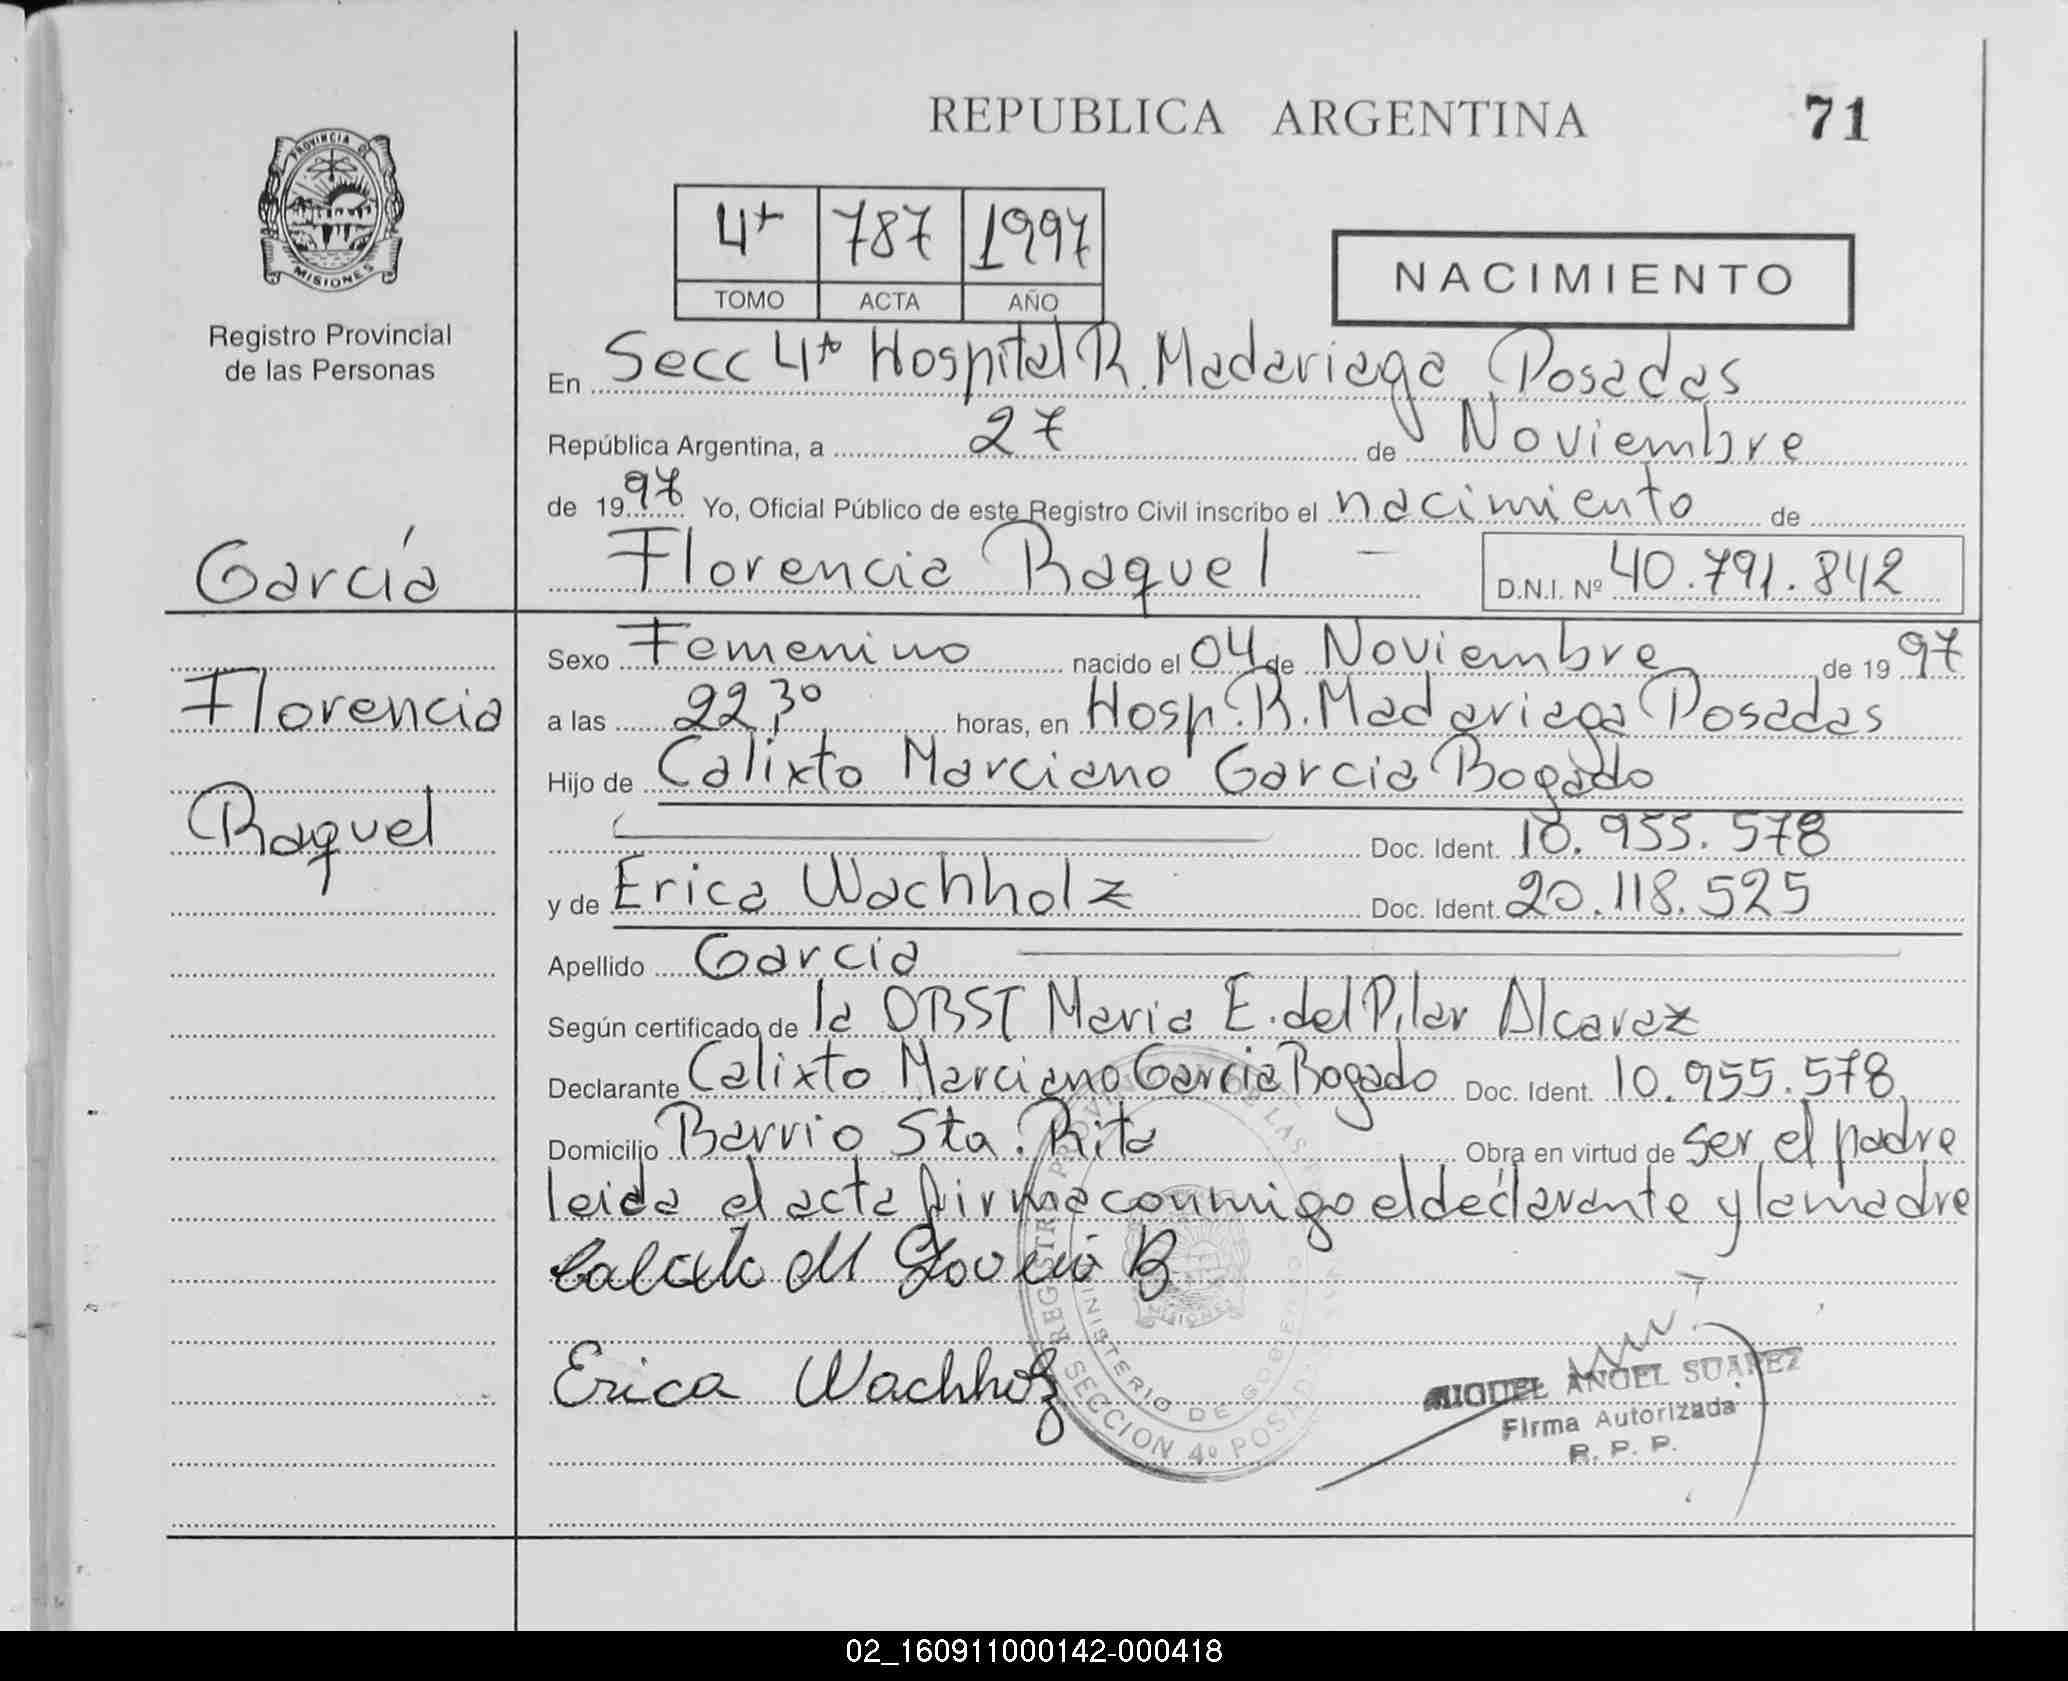 REPUBLICA ARGENTINA
71
PROVINCIA DE
MISIONES
Registro Provincial
de las Personas
4ta 787 1997
TOMO ACTA AÑO
NACIMIENTO
En Secc 4ta Hospital R. Madariaga Posadas
República Argentina, a 27 de Noviembre
de 1997 Yo, Oficial Público de este Registro Civil inscribo el nacimiento de
Florencia Raquel — D.N.I. Nº 40.791.842
García
Florencia
Raquel
Sexo Femenino nacido el 04 de Noviembre de 1997
a las 22,30 horas, en Hosp. R. Madariaga Posadas
Hijo de Calixto Marciano Garcia Bogado
Doc. Ident. 10.955.578
y de Erica Wachholz Doc. Ident. 20.118.525
Apellido Garcia
Según certificado de la OBST Maria E. del Pilar Alcaraz
Declarante Calixto Marciano Garcia Bogado Doc. Ident. 10.955.578
Domicilio Barrio Sta. Rita Obra en virtud de ser el padre
leida el acta firma conmigo el declarante y la madre
Erica Wachholz
MINISTERIO DE GOBIERNO
SECCION 4º POSADAS
MISIONES
MIGUEL ANGEL SUAREZ
Firma Autorizada
R. P. P.
02_160911000142-000418